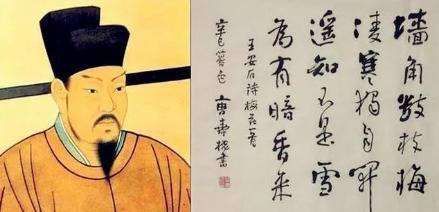 墙角数枝梅
凌寒独自开
遥知不是雪
为有暗香来
王安石诗梅花一首
辛巳
书